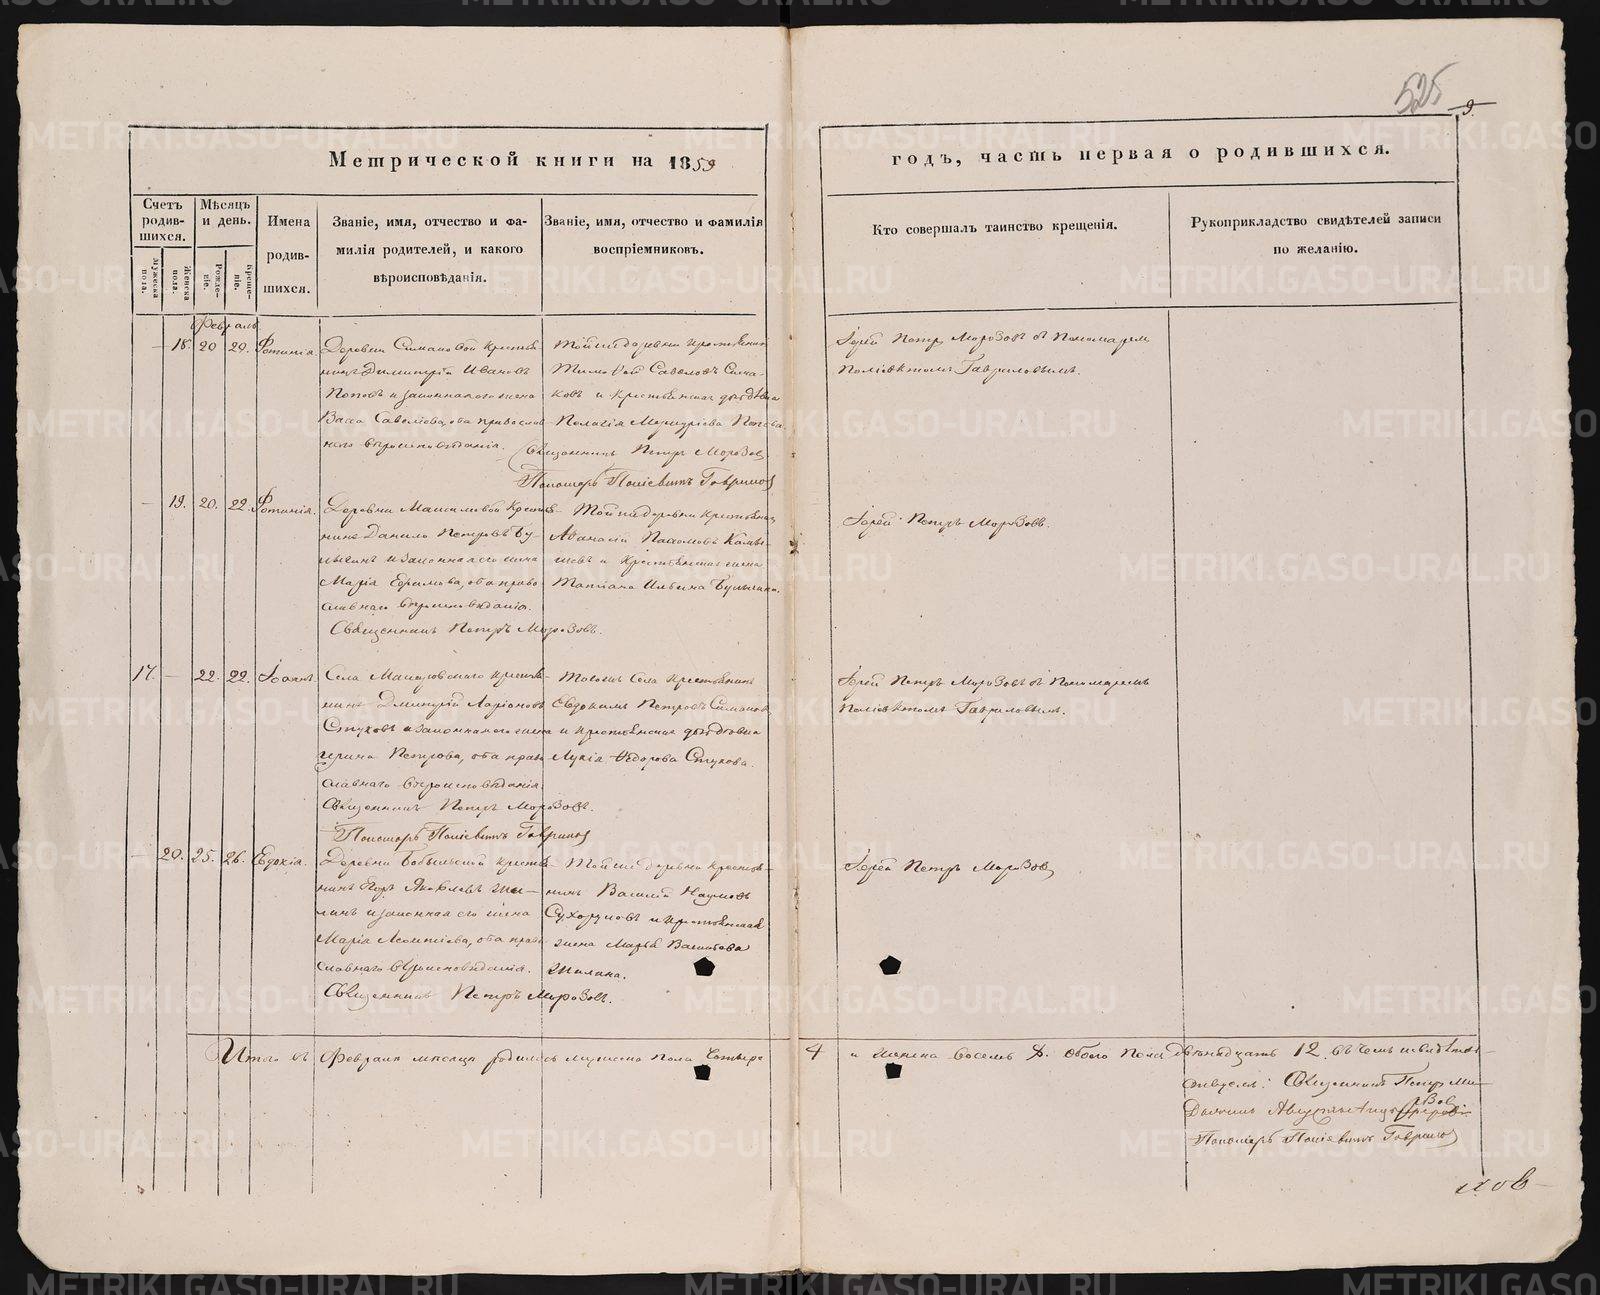 525
9
Метрической книги на 1859
годъ, часть первая о родившихся.
Счетъ родив-шихся.
Мѣсяцъ и день.
Имена родив-шихся.
Званіе, имя, отчество и фа-
милія родителей, и какого
вѣроисповѣданія.
Званіе, имя, отчество и фамилія
воспріемниковъ.
Кто совершалъ таинство крещенія.
Рукоприкладство свидѣтелей записи
по желанію.
Мужеска пола.
Женска пола.
Рожде-ніе.
Креще-ніе.
Февраль
— 18. 20 20. Фотинія.
Деревни крестья-
нинъ Димитрій Ивановъ
Поповъ и законная его жена
Васса Савелиова, оба православ-
наго вѣроисповѣданія.
Тойже деревни крестьянинъ
Тимофей Савеловъ Сима-
ковъ и крестьянская дѣвка
Пелагія Меркуріева Попова.
Священникъ Петръ Морозовъ
Пономарь Поліевктъ Гавриловъ
Іерей Петръ Морозовъ съ Пономаремъ
Поліевктомъ Гавриловымъ.
— 19. 20. 22. Фотинія.
Деревни крестья-
нинъ Данило Петровъ Бу-
лыгинъ и законная его жена
Марія Ефимова, оба право-
славнаго вѣроисповѣданія.
Священникъ Петръ Морозовъ.
Тойже деревни крестьянинъ
Афанасій Пахомовъ Камы-
шевъ и крестьянская жена
Татіана Ильина Булыгина.
Іерей Петръ Морозовъ.
17. — 22. 22. Іоаннъ.
Села крестья-
нинъ Дмитрій Ларіоновъ
Стуковъ и законная его жена
Ирина Петрова, оба право-
славнаго вѣроисповѣданія.
Священникъ Петръ Морозовъ.
Пономарь Поліевктъ Гавриловъ
Тогожъ села крестьянинъ
Евдокимъ Петровъ Симаковъ
и крестьянская дѣвка
Лукія Ѳедорова Стукова.
Іерей Петръ Морозовъ съ Пономаремъ
Поліевктомъ Гавриловымъ.
— 20. 25. 26. Евдокія.
Деревни Бобыльской крестья-
нинъ Егоръ Яковлевъ Ши-
линъ и законная его жена
Марія Леонтіева, оба право-
славнаго вѣроисповѣданія.
Священникъ Петръ Морозовъ.
Тойже деревни крестья-
нинъ Василій Наумовъ
Сухоруковъ и крестьянская
жена Марья Васильева
Шилина.
Іерей Петръ Морозовъ
Итого въ Февралѣ мѣсяцѣ родилось мужеска пола четыре 4 и женска восемь 8. обоего пола двѣнадцать 12. въ чемъ и свидѣтель-
ствуемъ: Священникъ Петръ Мо-
розовъ
Пономарь Поліевктъ Гавриловъ